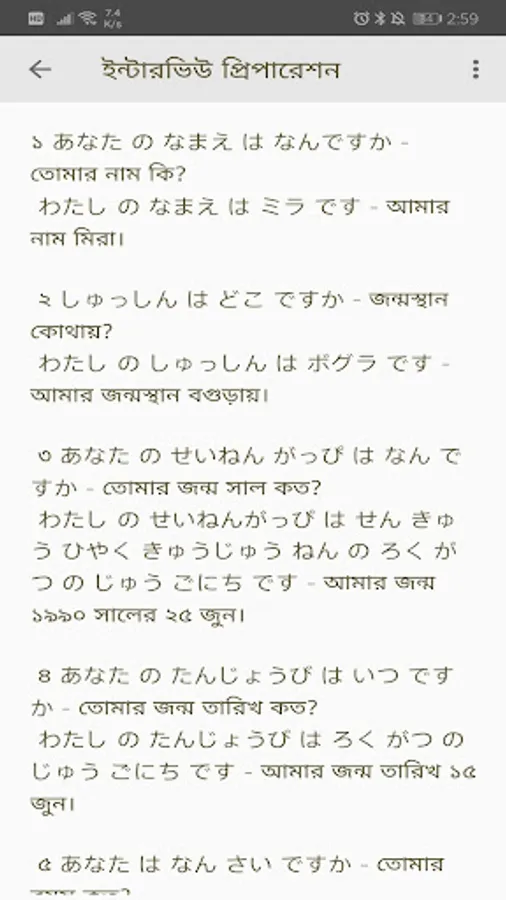 HD 7.4 K/s 64 2:59
ইন্টারভিউ প্রিপারেশন
১ あなた の なまえ は なんですか -
তোমার নাম কি?
わたし の なまえ は ミラ です - আমার
নাম মিরা।
২ しゅっしん は どこ ですか - জন্মস্থান
কোথায়?
わたし の しゅっしん は ボグラ です -
আমার জন্মস্থান বগুড়ায়।
৩ あなた の せいねん がっぴ は なん で
すか - তোমার জন্ম সাল কত?
わたし の せいねんがっぴ は せん きゅ
う ひやく きゅうじゅう ねん の ろく が
つ の じゅう ごにち です - আমার জন্ম
১৯৯০ সালের ২৫ জুন।
৪ あなた の たんじょうび は いつ です
か - তোমার জন্ম তারিখ কত?
わたし の たんじょうび は ろく がつ の
じゅう ごにち です - আমার জন্ম তারিখ ১৫
জুন।
৫ あなた は なん さい ですか - তোমার